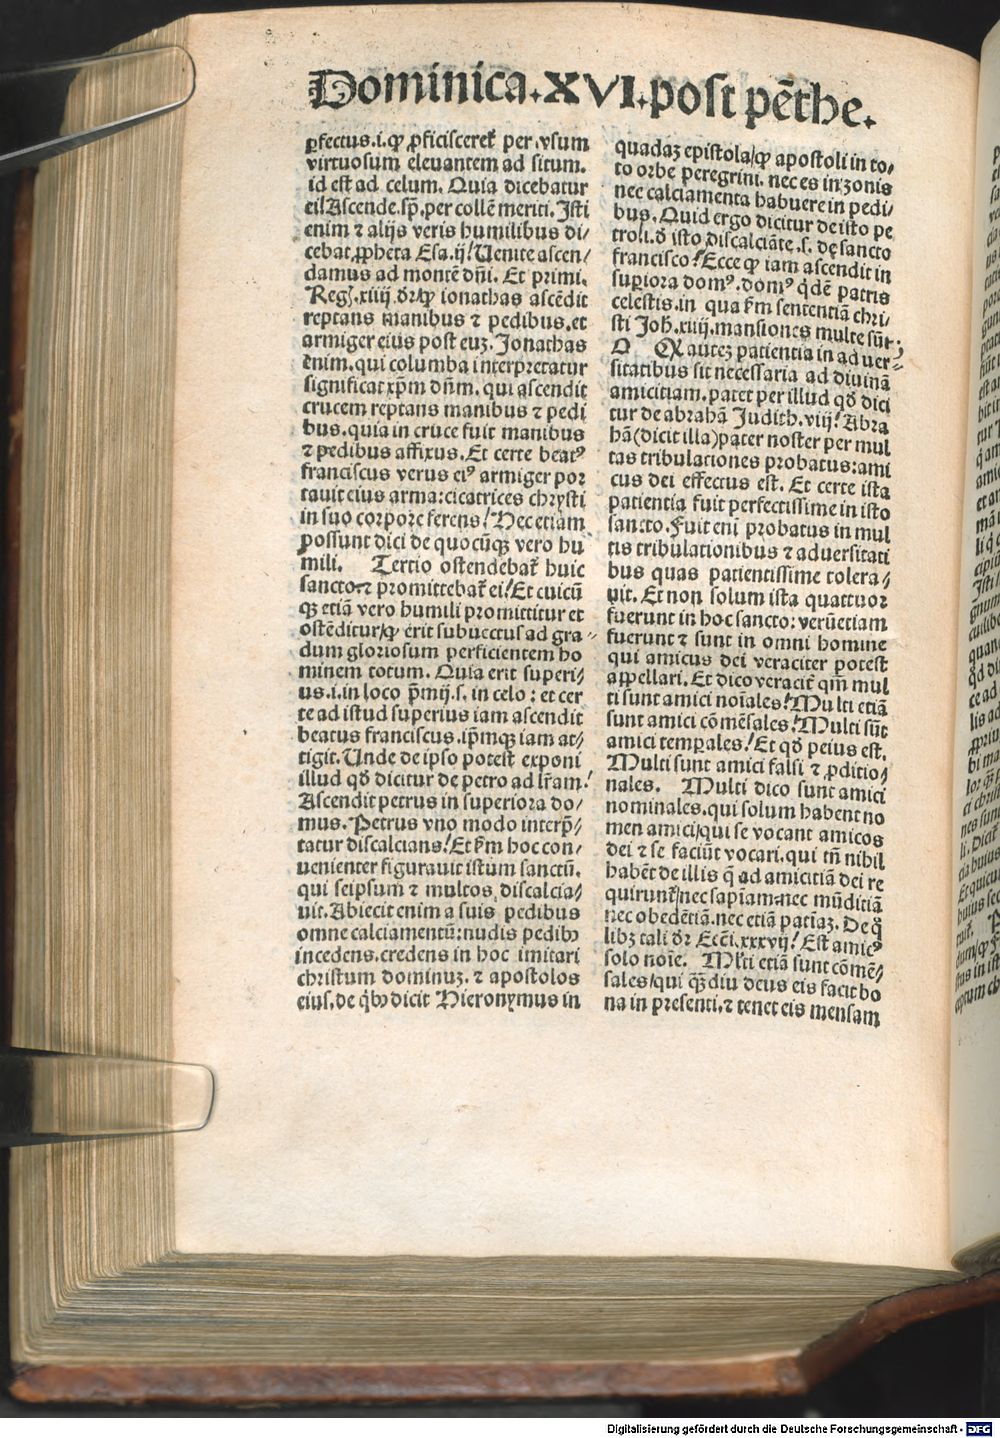 Dominica.XVI.post pēthe.
ꝑfectus.i.ꝙ ꝓficisceret᷑ per vsum
virtuosum eleuantem ad situm.
id est ad celum. Quia dicebatur
ei/Ascende.sp̄.per collē meriti. Isti
enim ⁊ alijs veris humilibus di/
cebat ꝓpheta Esa.ij/Uenite ascen/
damus ad montē dn̄i. Et primi.
Reg̃.xiiij dr̃/ꝙ ionathas ascēdit
reptans manibus ⁊ pedibus.et
armiger eius post euꝫ. Jonathas
enim.qui columba interpretatur
significat xp̄m dn̄m.qui ascendit
crucem reptans manibus ⁊ pedi
bus.quia in cruce fuit manibus
⁊ pedibus affixus. Et certe beatꝰ
franciscus verus eiꝰ armiger por
tauit eius arma:cicatrices chrysti
in suo corpore ferens/Hec etiam
possunt dici de quocūqꝫ vero hu
mili. Tertio ostendebat᷑ huic
sancto⁊ promittebat᷑ ei/Et cuicū
qꝫ etiā vero humili promittitur et
ostēditur/ꝙ erit subuectus ad gra
dum gloriosum perficientem ho
minem totum. Quia erit superi/
us.i.in loco p̄mij.s.in celo: et cer
te ad istud superius iam ascendit
beatus franciscus.ip̄mqꝫ iam at/
tigit. Unde de ipso potest exponi
illud qđ dicitur de petro ad lr̄am/
Ascendit petrus in superiora do/
mus. Petrus vno modo interp̄/
tatur discalcians/Et ẜm hoc con/
uenienter figurauit istum sanctū.
qui seipsum ⁊ multos discalcia/
uit. Abiecit enim a suis pedibus
omne calciamentū:nudis pedibꝰ
incedens.credens in hoc imitari
christum dominuꝫ.⁊ apostolos
eius.de qĩbꝰ dicit Hieronymus in
quadaꝫ epistola/ꝙ apostoli in to/
to orbe peregrini.nec es in zonis
nec calciamenta habuere in pedi
bus. Quid ergo dicitur de isto pe
tro/i.đ isto discalciāte.s.de sancto
francisco/Ecce ꝙ iam ascendit in
superiora domꝰ.domꝰ qˈdē patris
celestis.in qua ẜm sententiā chri/
sti Joh̄.xiiij.mansiones multe sūt.
O Ex auteꝫ patientia in aduer/
sitatibus sit necessaria ad diuinā
amicitiam.patet per illud qđ dici
tur de abrahā Judith.viij/Abra
hā(dicit illa)pater noster per mul
tas tribulationes probatus:ami
cus dei effectus est. Et certe ista
patientia fuit perfectissime in isto
sancto. Fuit eni probatus in mul
tis tribulationibus ⁊ aduersitati
bus quas patientissime tolera/
uit. Et non solum ista quattuor
fuerunt in hoc sancto: verūetiam
fuerunt ⁊ sunt in omni homine
qui amicus dei veraciter potest
appellari. Et dico veracit᷑ qm̄ mul
ti sunt amici noīales/Multi etiā
sunt amici cōmēsales/Multi sūt
amici temꝑales/Et qđ peius est.
Multi sunt amici falsi ⁊ ꝓditio/
nales. Multi dico sunt amici
nominales.qui solum habent no
men amici/qui se vocant amicos
dei ⁊ se faciūt vocari.qui tn̄ nihil
habēt de illis q̄ ad amicitiā dei re
quirunt᷑/nec sapīam.nec mūditiā
nec obedētiā.nec etiā patīaꝫ. De qˈ
libꝫ tali dr̃ Ecci.xxxvij/Est amicꝰ
solo noīe. Ml̄ti etiā sunt cōmē/
sales/qui qꝫ̄diu deus eis facit bo
na in presenti.⁊ tenet eis mensam
Digitalisierung gefördert durch die Deutsche Forschungsgemeinschaft - DFG